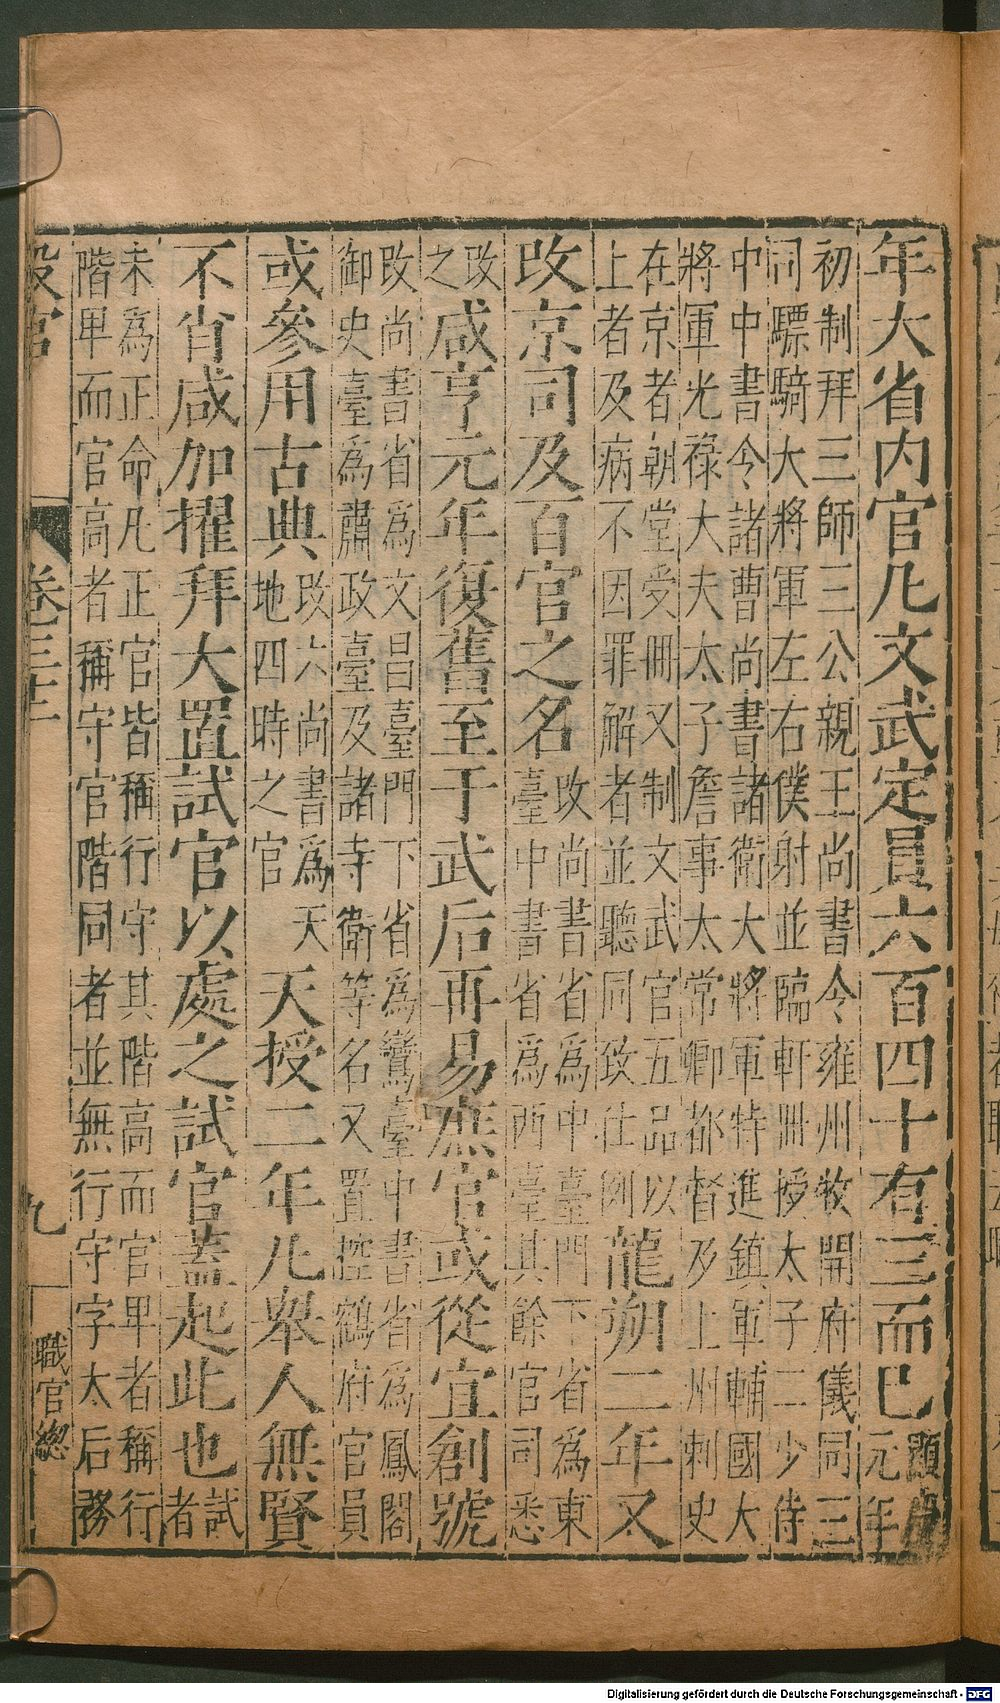 年大省内官凡文武定員六百四十有三而巳顯慶
元年
初制拜三師三公親王尚書令雍州牧開府儀同三
司驃騎大將軍左右僕射並臨軒冊授太子二少侍
中中書令諸曹尚書諸衛大將軍特進鎮軍輔國大
將軍光祿大夫太子詹事太常卿都督及上州刺史
在京者朝堂受冊又制文武官五品以
上者及病不因罪解者並聽同致仕例龍朔二年又
改京司及百官之名改尚書省爲中臺門下省爲東
臺中書省爲西臺其餘官司悉
改
之咸亨元年復舊至于武后再易庶官或從宜創號
改尚書省爲文昌臺門下省爲鸞臺中書省爲鳳閣
御史臺爲肅政臺及諸寺衛等名又置控鶴府官員
或參用古典改六尚書爲天
地四時之官天授二年凡舉人無賢
不肖咸加擢拜大置試官以處之試官蓋起此也試
者
未爲正命凡正官皆稱行守其階高而官卑者稱行
階卑而官高者稱守官階同者並無行守字太后務
設官
卷三十
九
職官總
Digitalisierung gefördert durch die Deutsche Forschungsgemeinschaft - DFG